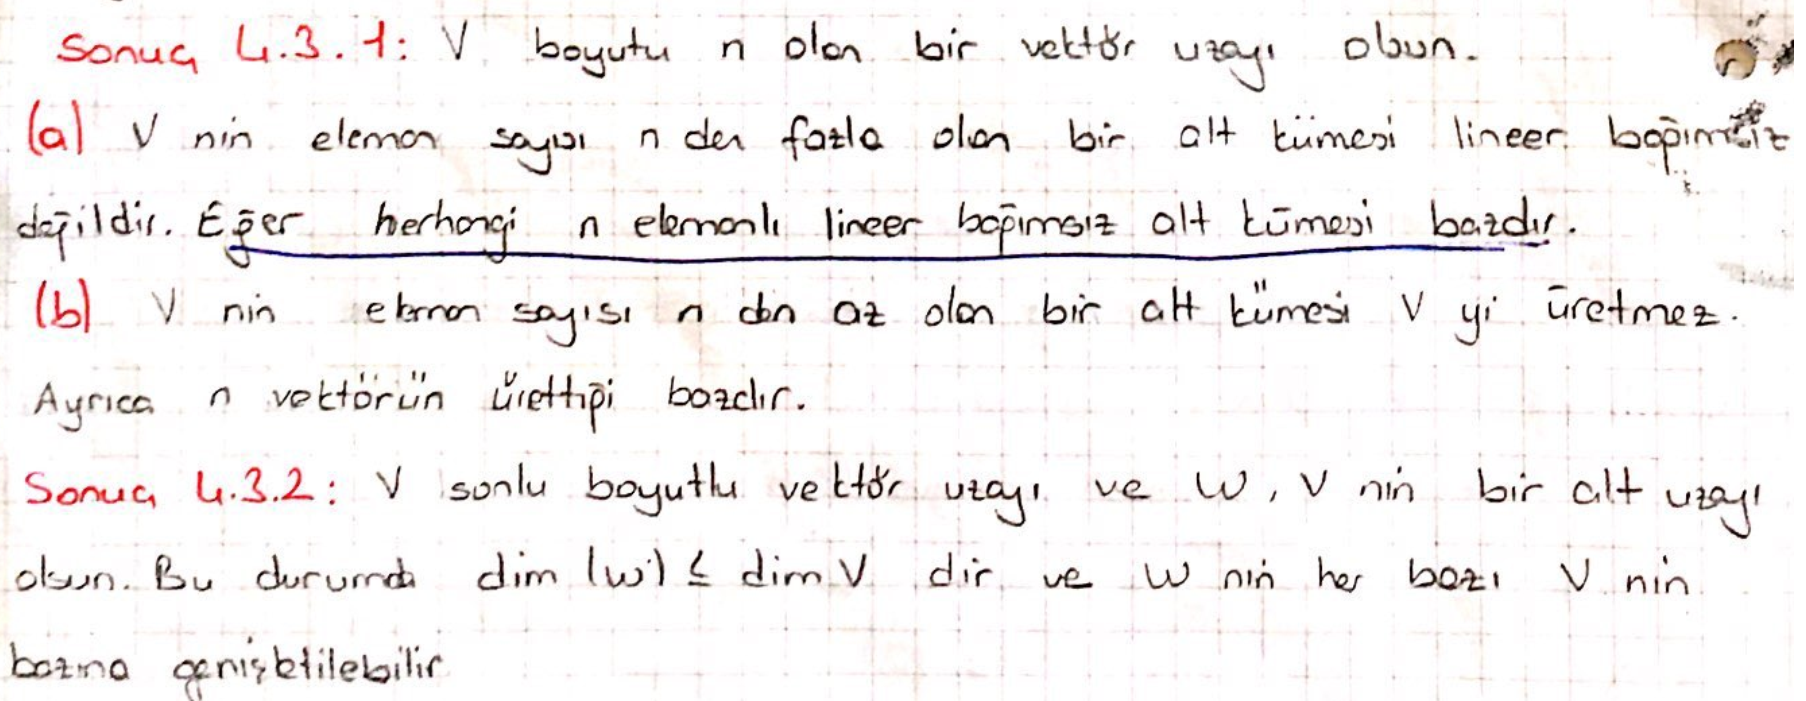 Sonuç 4.3.1: V boyutu n olan bir vektör uzayı olsun.
(a) V nin eleman sayısı n den fazla olan bir alt kümesi lineer bağımsız
değildir. Eğer herhangi n elemanlı lineer bağımsız alt kümesi bazdır.
(b) V nin eleman sayısı n den az olan bir alt kümesi V yi üretmez.
Ayrıca n vektörün ürettiği bazdır.
Sonuç 4.3.2: V sonlu boyutlu vektör uzayı ve W, V nin bir alt uzayı
olsun. Bu durumda dim (w) ≤ dim V dir ve W nin her bazı V nin
bazına genişletilebilir